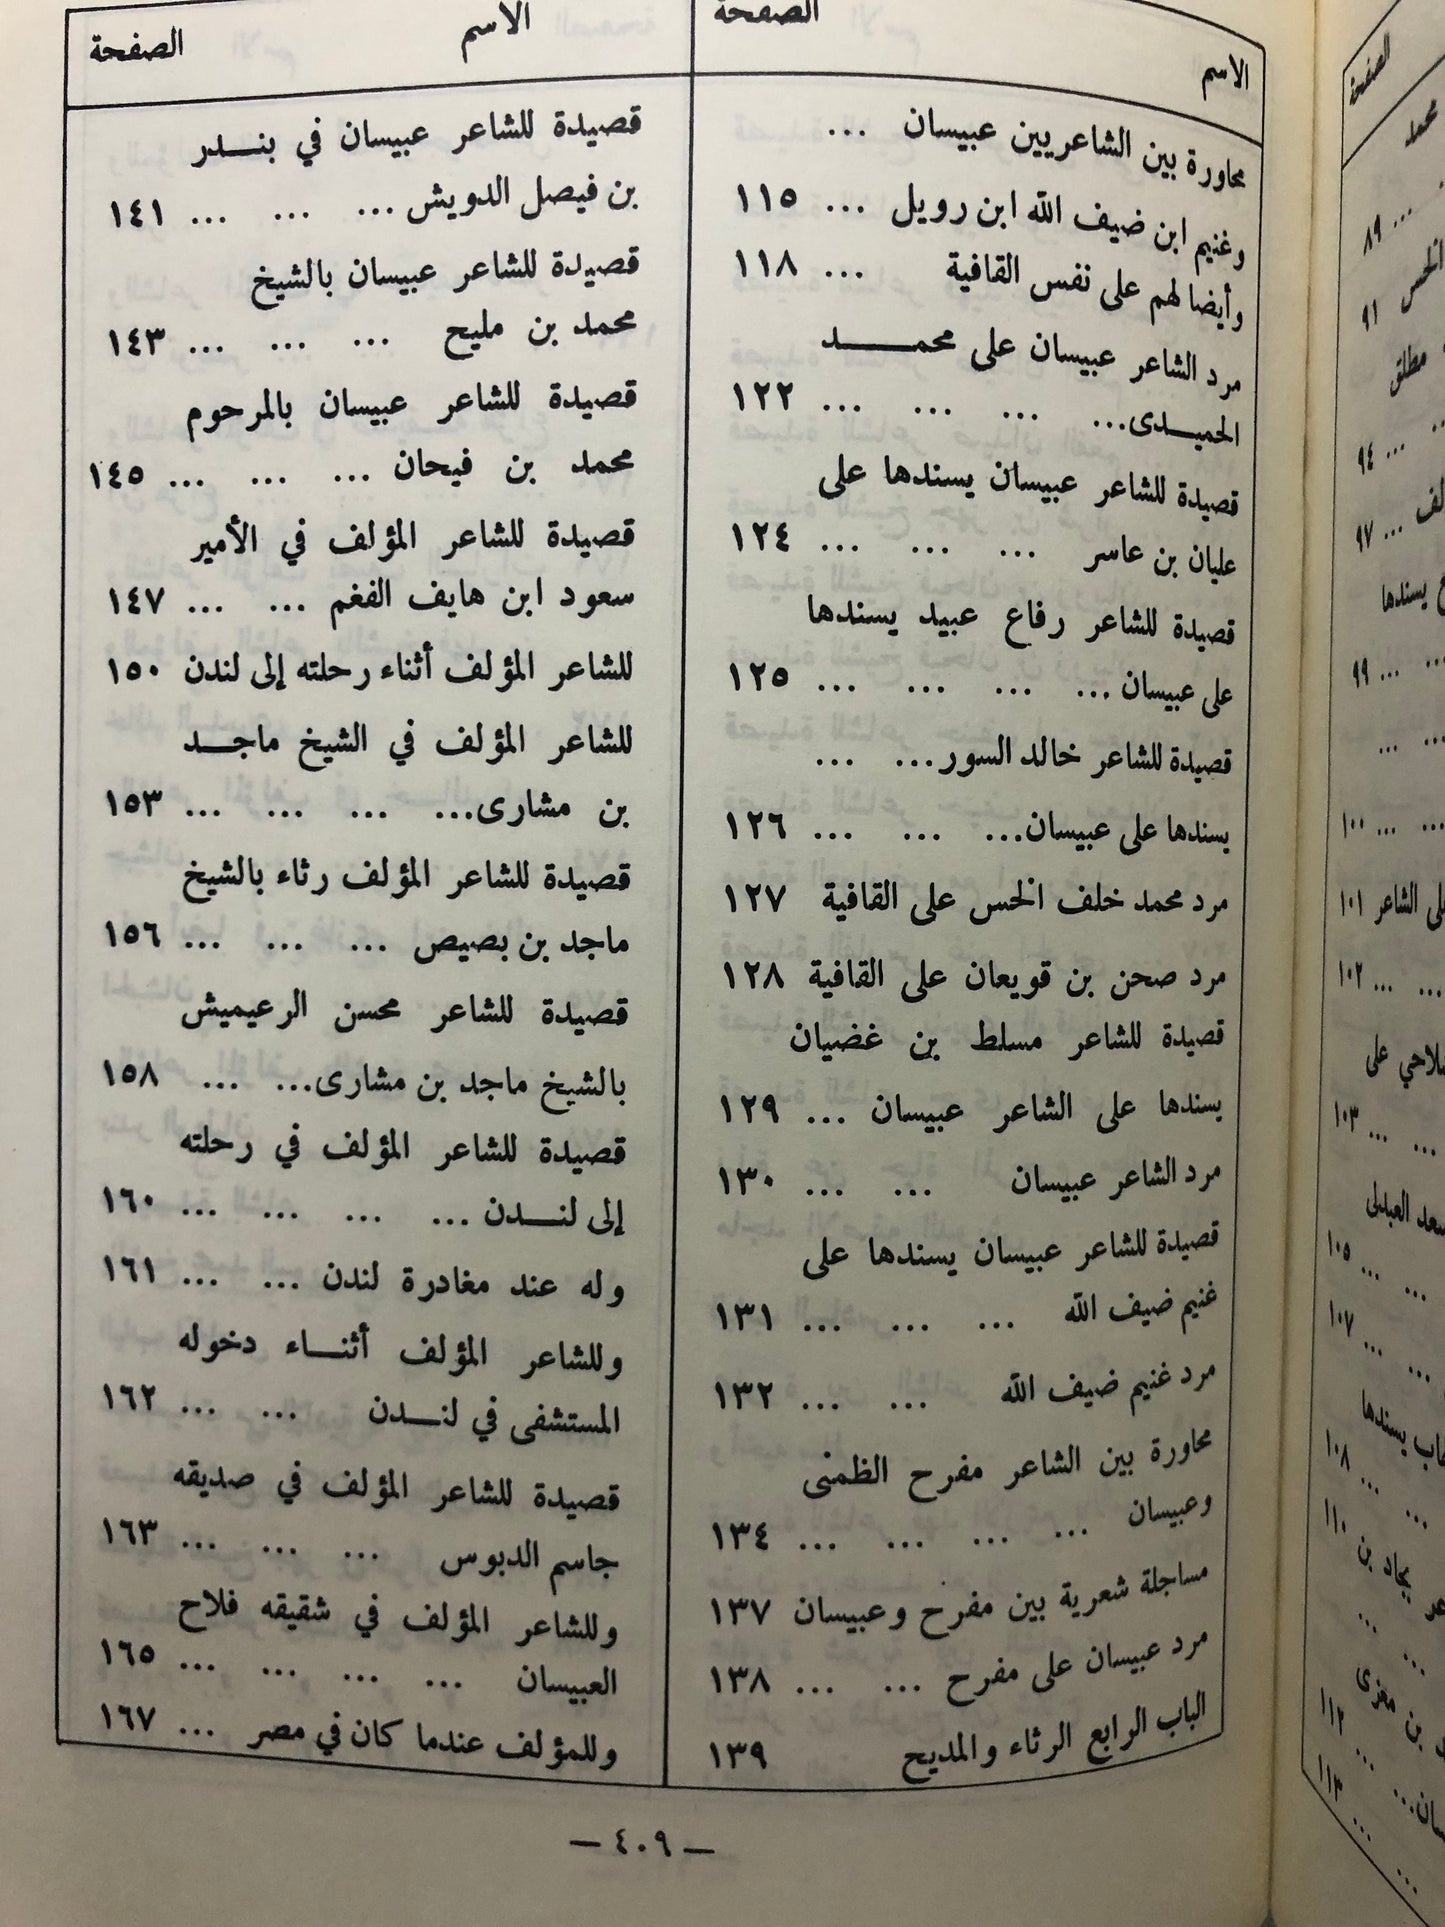 الاسم الصفحة
محاورة بين الشاعريين عبيسان ...
وغنيم ابن ضيف الله ابن رويل ... ١١٥
وأيضا لهم على نفس القافية ... ١١٨
مرد الشاعر عبيسان على محمـــــد
الحميـدى... ... ... ... ١٢٢
قصيدة للشاعر عبيسان يسندها على
عليان بن عاسر ... ... ... ١٢٤
قصيدة للشاعر رفاع عبيد يسندها
على عبيسان ... ... ... ... ١٢٥
قصيدة للشاعر خالد السور... ...
يسندها على عبيسان... ... ... ١٢٦
مرد محمد خلف الخس على القافية ١٢٧
مرد صحن بن قويعان على القافية ١٢٨
قصيدة للشاعر مسلط بن غضيان
يسندها على الشاعر عبيسان ... ١٢٩
مرد الشاعر عبيسان ... ... ١٣٠
قصيدة للشاعر عبيسان يسندها على
غنيم ضيف الله ... ... ... ١٣١
مرد غنيم ضيف الله ... ... ١٣٢
محاورة بين الشاعر مفرح الظمنى
وعبيسان ... ... ... ... ١٣٤
مساجلة شعرية بين مفرح وعبيسان ١٣٧
مرد عبيسان على مفرح ... ... ١٣٨
الباب الرابع الرثاء والمديح ١٣٩
الاسم الصفحة
قصيدة للشاعر عبيسان في بنـــدر
بن فيصل الدويش ... ... ... ١٤١
قصيدة للشاعر عبيسان بالشيخ
محمد بن مليح ... ... ... ١٤٣
قصيدة للشاعر عبيسان بالمرحوم
محمد بن فيحان ... ... ... ١٤٥
قصيدة للشاعر المؤلف في الأمير
سعود ابن هايف الفغم ... ... ١٤٧
للشاعر المؤلف أثناء رحلته إلى لندن ١٥٠
للشاعر المؤلف في الشيخ ماجـــد
بن مشارى... ... ... ... ١٥٣
قصيدة للشاعر المؤلف رثاء بالشيخ
ماجد بن بصيص ... ... ... ١٥٦
قصيدة للشاعر محسن الرعيميش
بالشيخ ماجد بن مشارى... ... ١٥٨
قصيدة للشاعر المؤلف في رحلته
إلى لنــدن ... ... ... ... ١٦٠
وله عند مغادرة لندن ... ... ١٦١
وللشاعر المؤلف أثنـــاء دخوله
المستشفى في لنــدن ... ... ١٦٢
قصيدة للشاعر المؤلف في صديقه
جاسم الدبوس ... ... ... ١٦٣
وللشاعر المؤلف في شقيقه فلاح
العبيسان ... ... ... ١٦٥
وللمؤلف عندما كان في مصر ... ١٦٧
— ٤٠٩ —
الصفحة
محمد
... ٨٩
الخس ٩١
مطلق
... ٩٤
... ٩٧
يسندها
... ٩٩
... ... ١٠٠
الشاعر ١٠١
... ... ١٠٢
على
... ... ١٠٣
سعد العبدلى
... ... ١٠٥
... ... ١٠٧
يسندها
... ... ١٠٨
١١٠
بجاد بن
بن مغزى
... ١١٢
... ١١٣